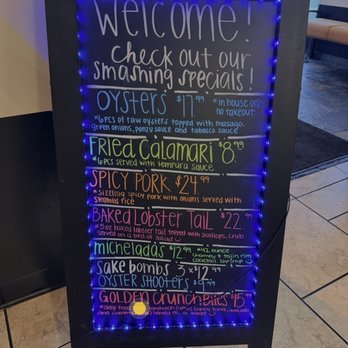 Welcome!
check out our
smashing specials!
OYSTERS $17.99 *in house only
no takeout
*6 pcs of raw oysters topped with masago,
green onions, ponzu sauce and tabasco sauce
FRIED CALAMARI $8.99
*6 pcs served with tempura sauce
SPICY PORK $24.99
*sizzling spicy pork with onions served with
steamed rice
BAKED LOBSTER TAIL $22.99
*5oz baked lobster tail topped with scallops, crab
served on a bed of salad
micheladas $12.99 *42 ounce
chamoy & tajin rim
cocktail shrimp
SAKE BOMBS 3 x $12.99
OYSTER SHOOTERS $9.99
GOLDEN CRUNCH BITES $15
*deep fried spicy tuna, avocado
and served on a